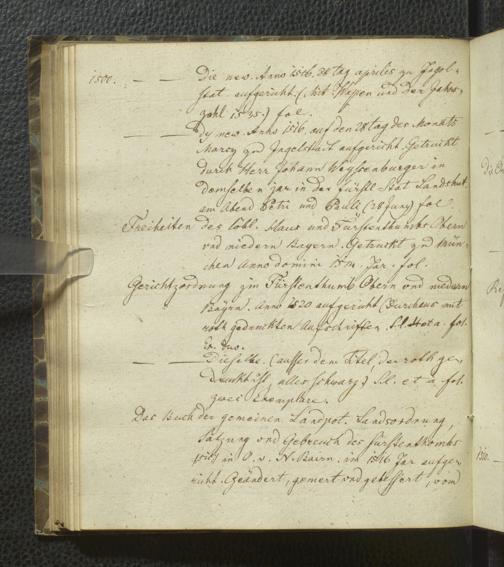 1500. — — Die new. Anno 1516. 24 tag aprilis zu Ingol-
stat aufgericht (mit Wappen und der Jahrs-
zahl 1535.) fol.
— — Dy new. Anno 1516, auf den 24 tag des Monats
Marcy zu Ingelstadt aufgericht. Getruckt
durch Herr Johann Weyssenburger in
demselben jar in der fürstl. Stat Landshut
am Abend Petri und Pauli (28 Juny) fol.
Freiheiten des löbl. Haus und Fürstenthumbs Obern
vnd nidern Bayern. Getruckt zu Mün-
chen Anno domini 1514. Jar. fol.
Gerichtzordnung zu Fürstenthumb Obern vnd nidern
Bayrn. Anno 1520 aufgericht (Durchaus mit
roth gedruckten Aufschriften. S. l. et a. fol.
Ex. duo.
— — Dieselbe. (ausser dem Titel, der roth ge-
druckt ist, alles schwarz) S. l. et a. fol.
zwei Exemplare.
Das Buch der gemeinen Landpot. Landsordnung,
Satzung vnd Gebreuch des Fürstenthombs
in O. v. N. Bairn. im 1516 Jar aufge-
richt. Geändert, gemert vnd gebessert, vnd
1510.